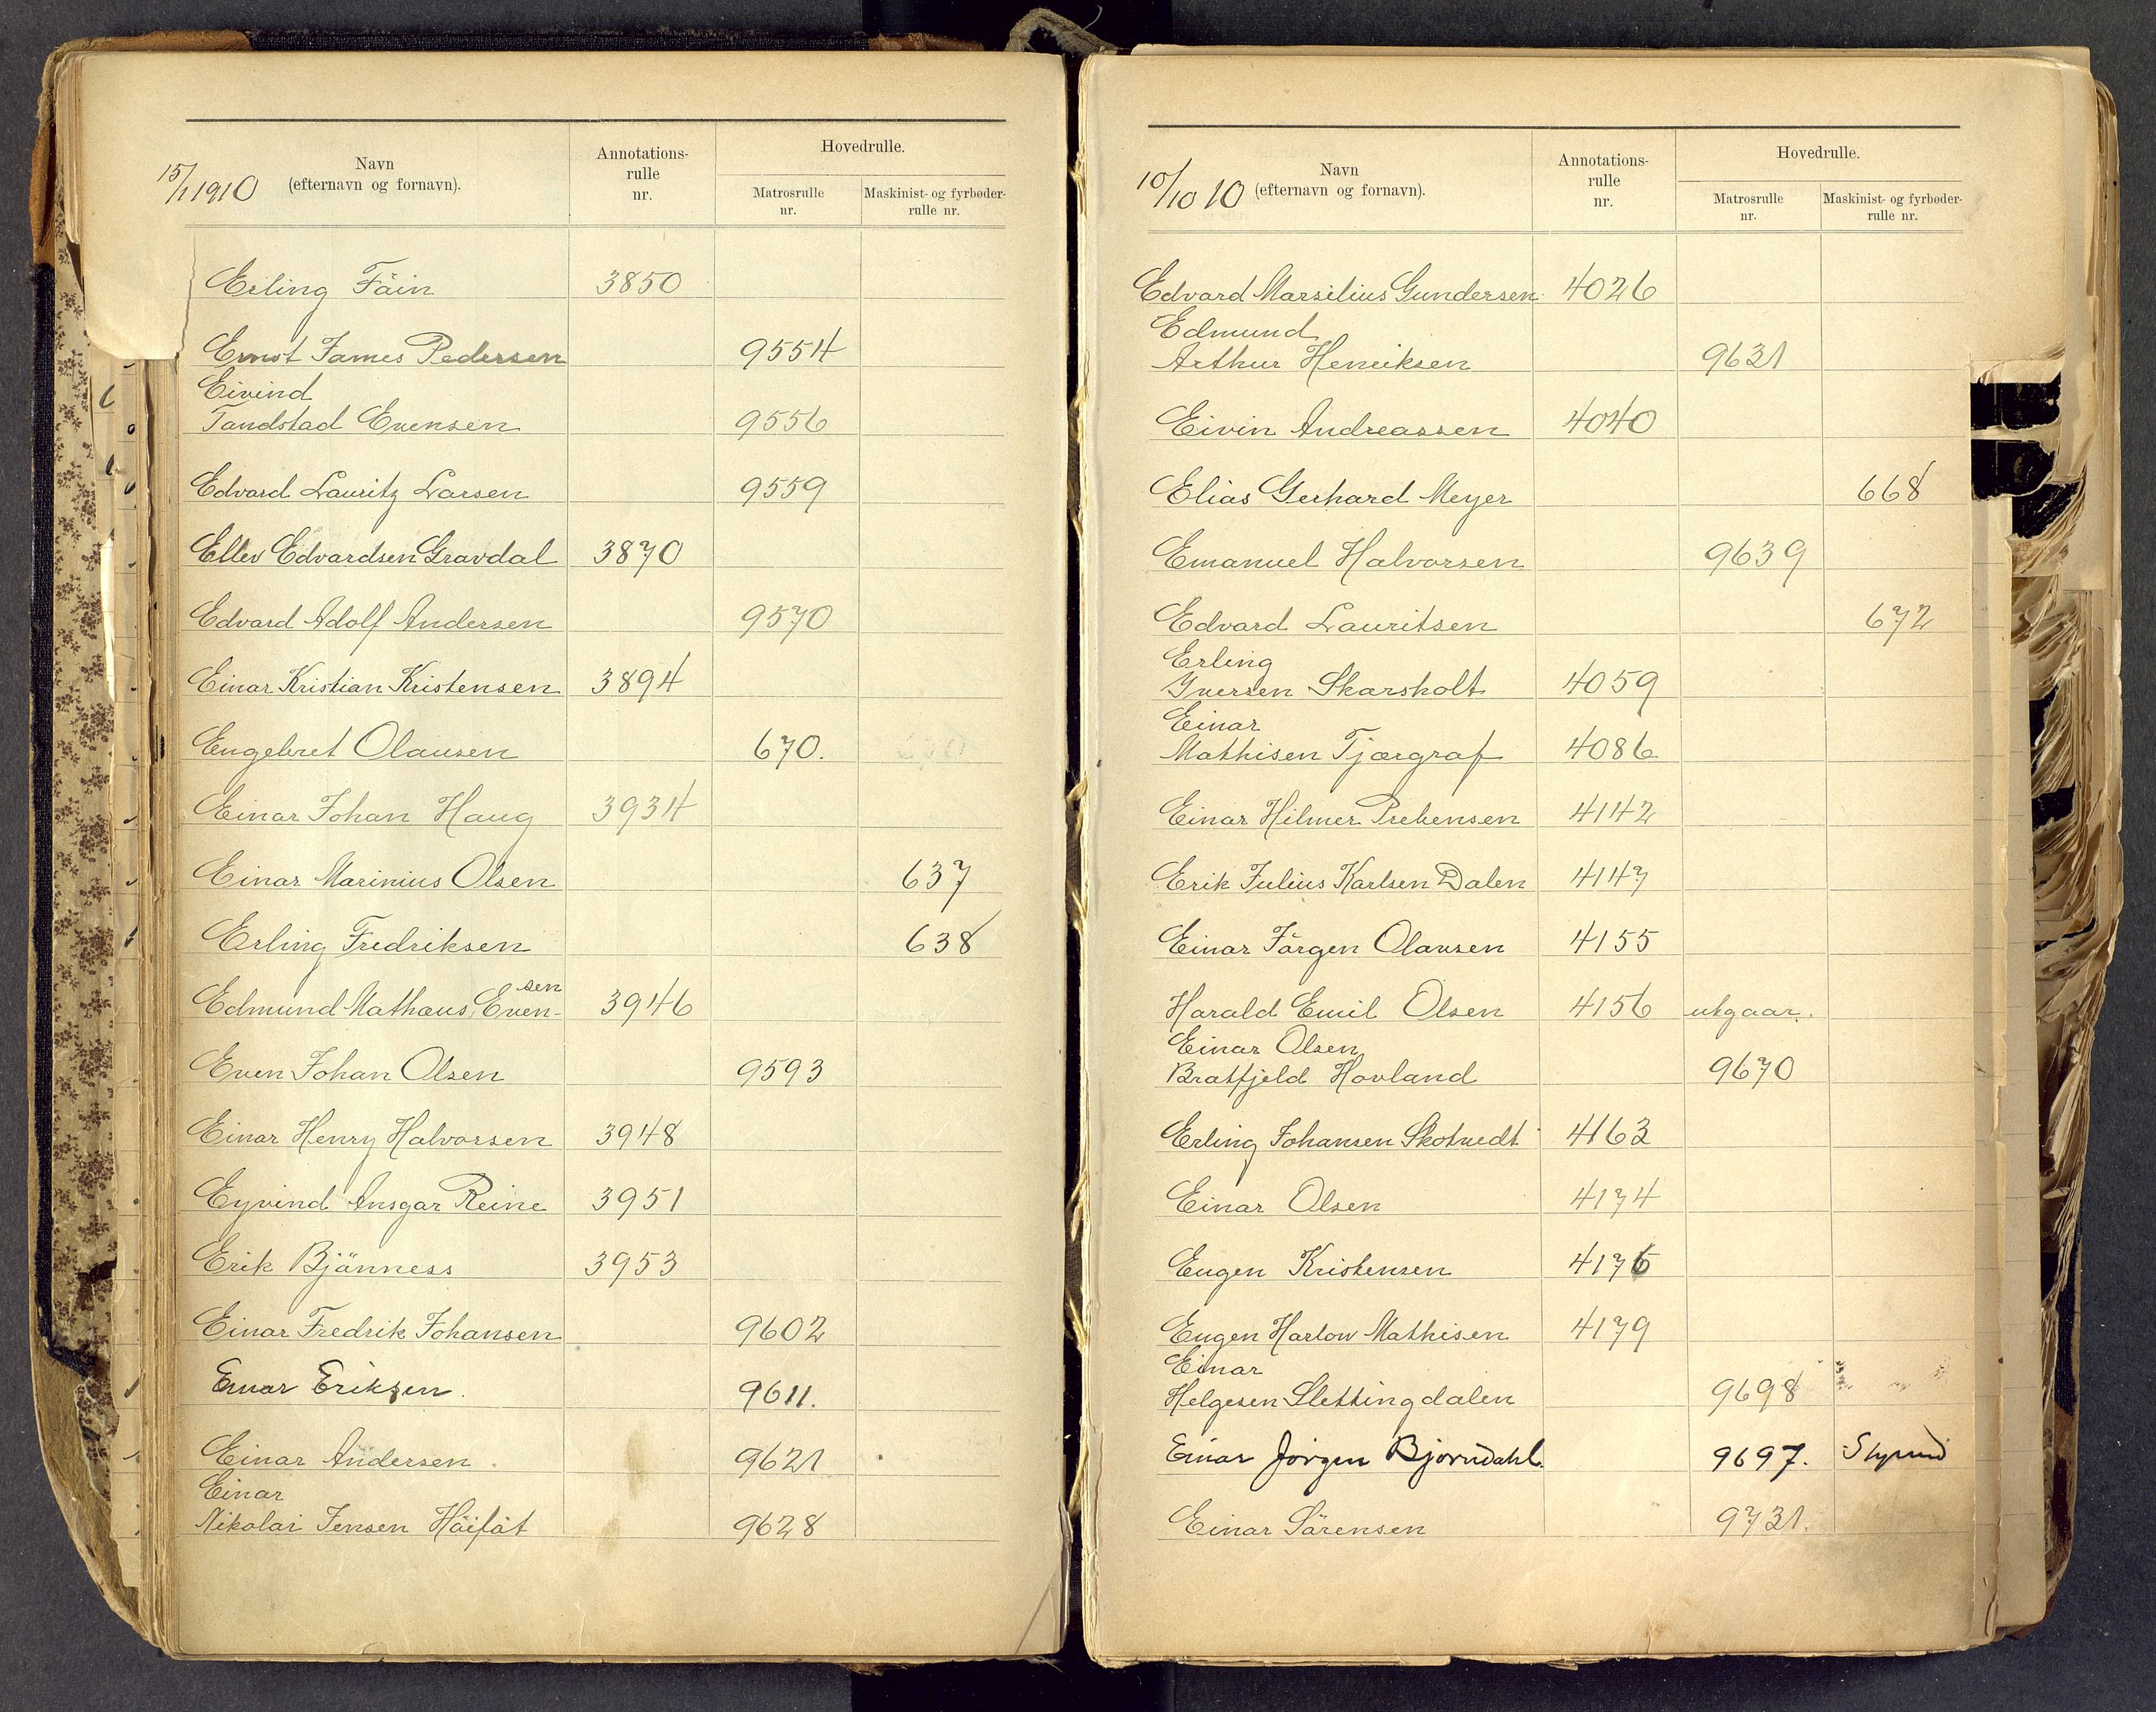 15/1 1910
Navn
(efternavn og fornavn).
Annotations-
rulle
nr.
Hovedrulle.
Matrosrulle
nr.
Maskinist- og fyrbøder-
rulle nr.
Erling Föin 3850
Ernst James Pedersen 9554
Eivind
Tandstad Evensen 9556
Edvard Lauritz Larsen 9559
Ellev Edvardsen Gravdal 3870
Edvard Adolf Andersen 9570
Einar Kristian Kristensen 3894
Engebret Olausen 670.
Einar Johan Haug 3934
Einar Marinius Olsen 637
Erling Fredriksen 638
sen
Edmund Mathæus Even- 3946
Even Johan Olsen 9593
Einar Henry Halvorsen 3948
Eyvind Ansgar Reine 3951
Erik Bjönness 3953
Einar Fredrik Johansen 9602
Einar Eriksen. 9611.
Einar Andersen. 9621
Einar
Nikolai Jensen Höiföt 9628
10/10 10
Navn
(efternavn og fornavn).
Annotations-
rulle
nr.
Hovedrulle.
Matrosrulle
nr.
Maskinist- og fyrbøder-
rulle nr.
Edvard Marsilius Gundersen 4026
Edmund
Arthur Henriksen 9631
Eivin Andreassen 4040
Elias Gerhard Meyer 668
Emanuel Halvorsen 9639
Edvard Lauritsen 672
Erling
Iversen Skarsholt 4059
Einar
Mathisen Tjærgraf 4086
Einar Hilmer Prebensen 4142
Erik Julius Karlsen Dalen 4147
Einar Jörgen Olausen 4155
Harald Emil Olsen 4156 utgaar.
Einar Olsen
Bratfjeld Hovland 9670
Erling Johansen Skotvedt 4163
Einar Olsen 4174
Eugen Kristensen 4176
Eugen Harlow Mathisen 4179
Einar
Helgesen Slettingdalen 9698
Einar Jörgen Bjorndahl. 9697.
Einar Sörensen 9731.